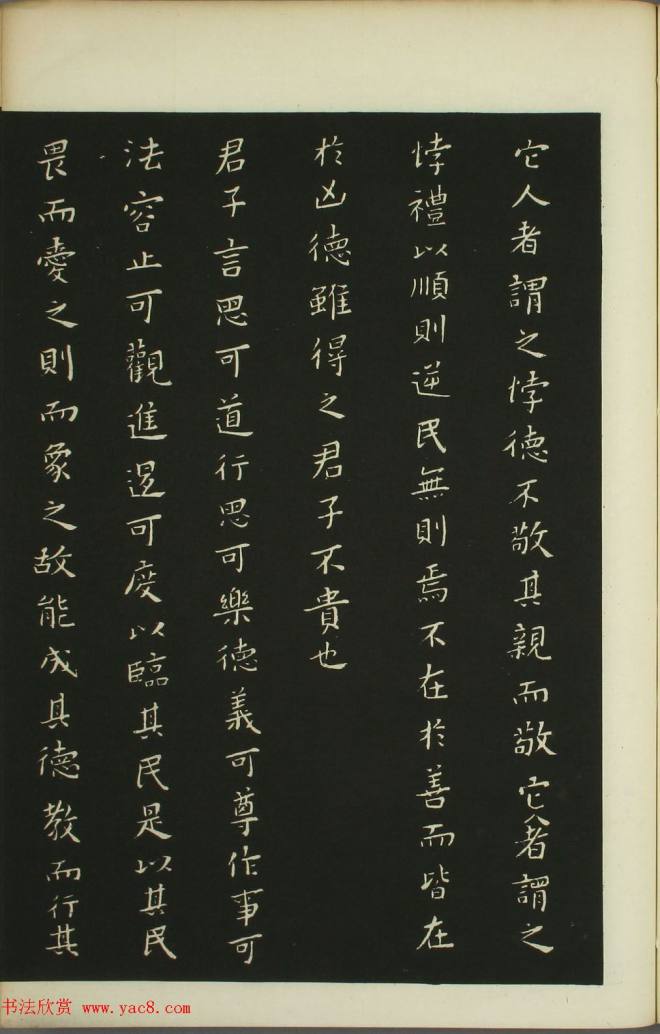 它人者謂之悖德不敬其親而敬它人者謂之
悖禮以順則逆民無則焉不在於善而皆在
於凶德雖得之君子不貴也
君子言思可道行思可樂德義可尊作事可
法容止可觀進退可度以臨其民是以其民
畏而愛之則而象之故能成其德教而行其
书法欣赏 www.yac8.com